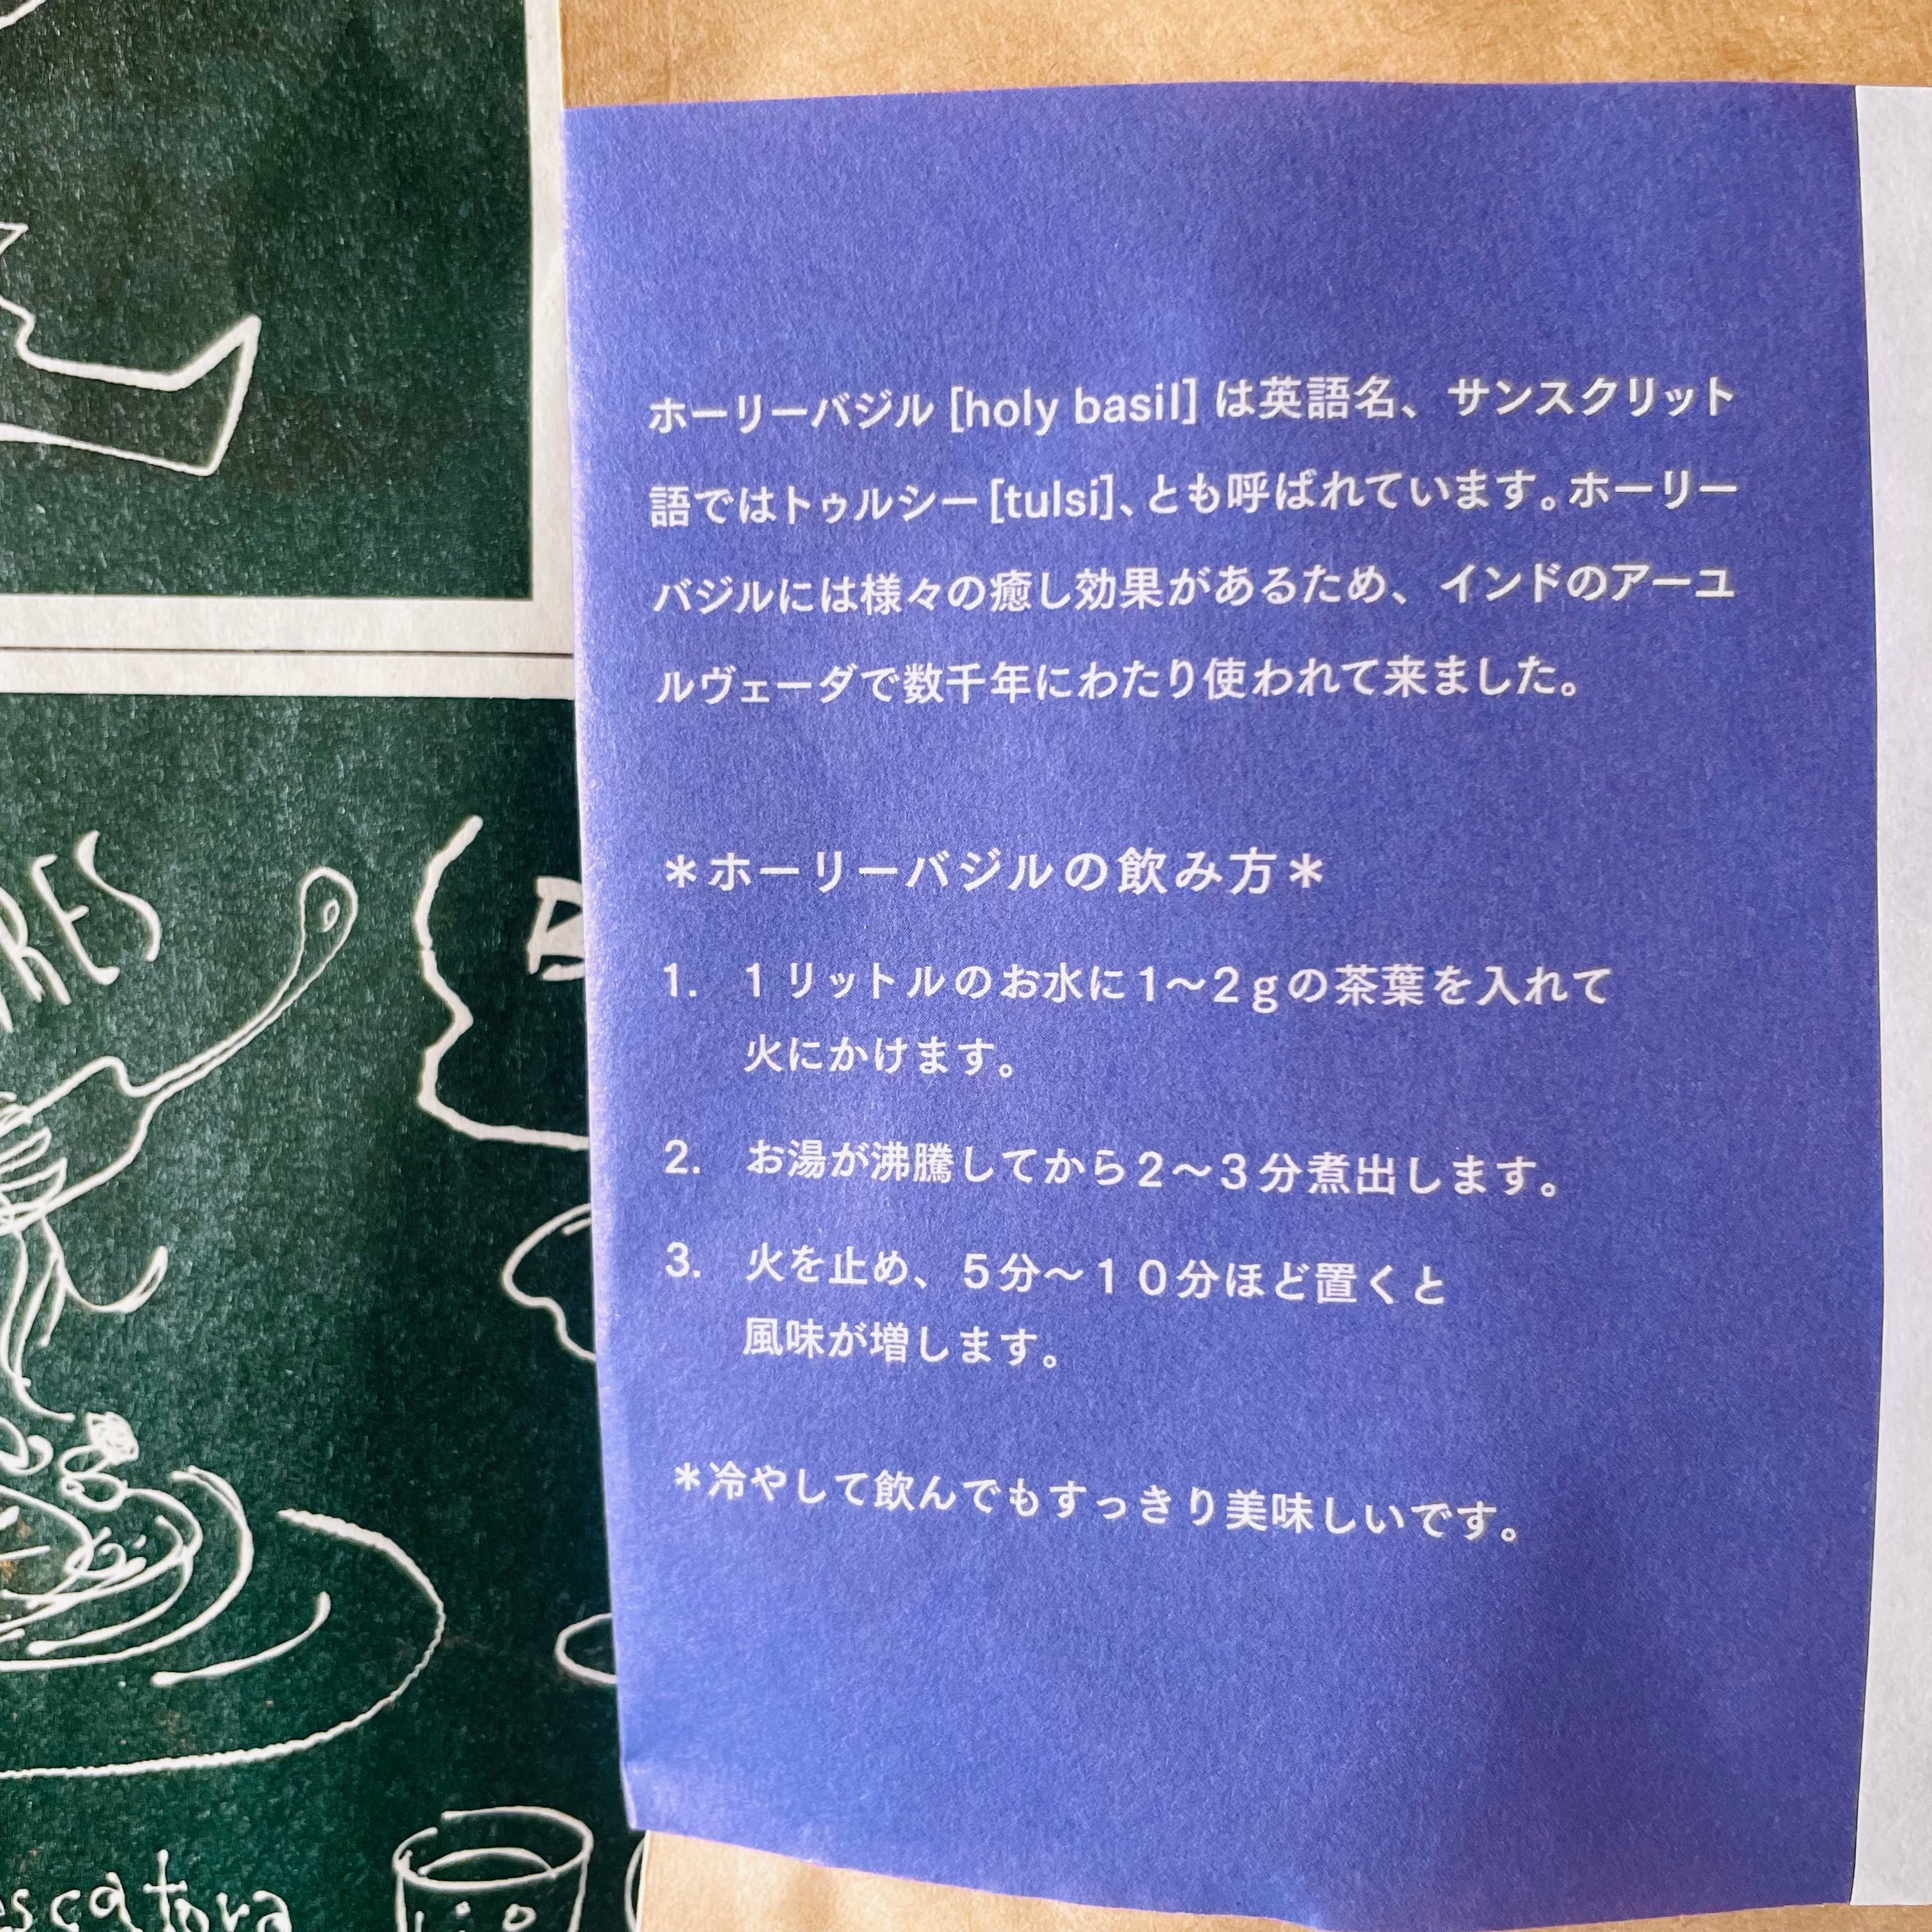 ホーリーバジル [holy basil] は英語名、サンスクリット
語ではトゥルシー[tulsi]、とも呼ばれています。ホーリー
バジルには様々の癒し効果があるため、インドのアーユ
ルヴェーダで数千年にわたり使われて来ました。
＊ホーリーバジルの飲み方＊
1. 1リットルのお水に1〜2gの茶葉を入れて
火にかけます。
2. お湯が沸騰してから2〜3分煮出します。
3. 火を止め、5分〜10分ほど置くと
風味が増します。
＊冷やして飲んでもすっきり美味しいです。